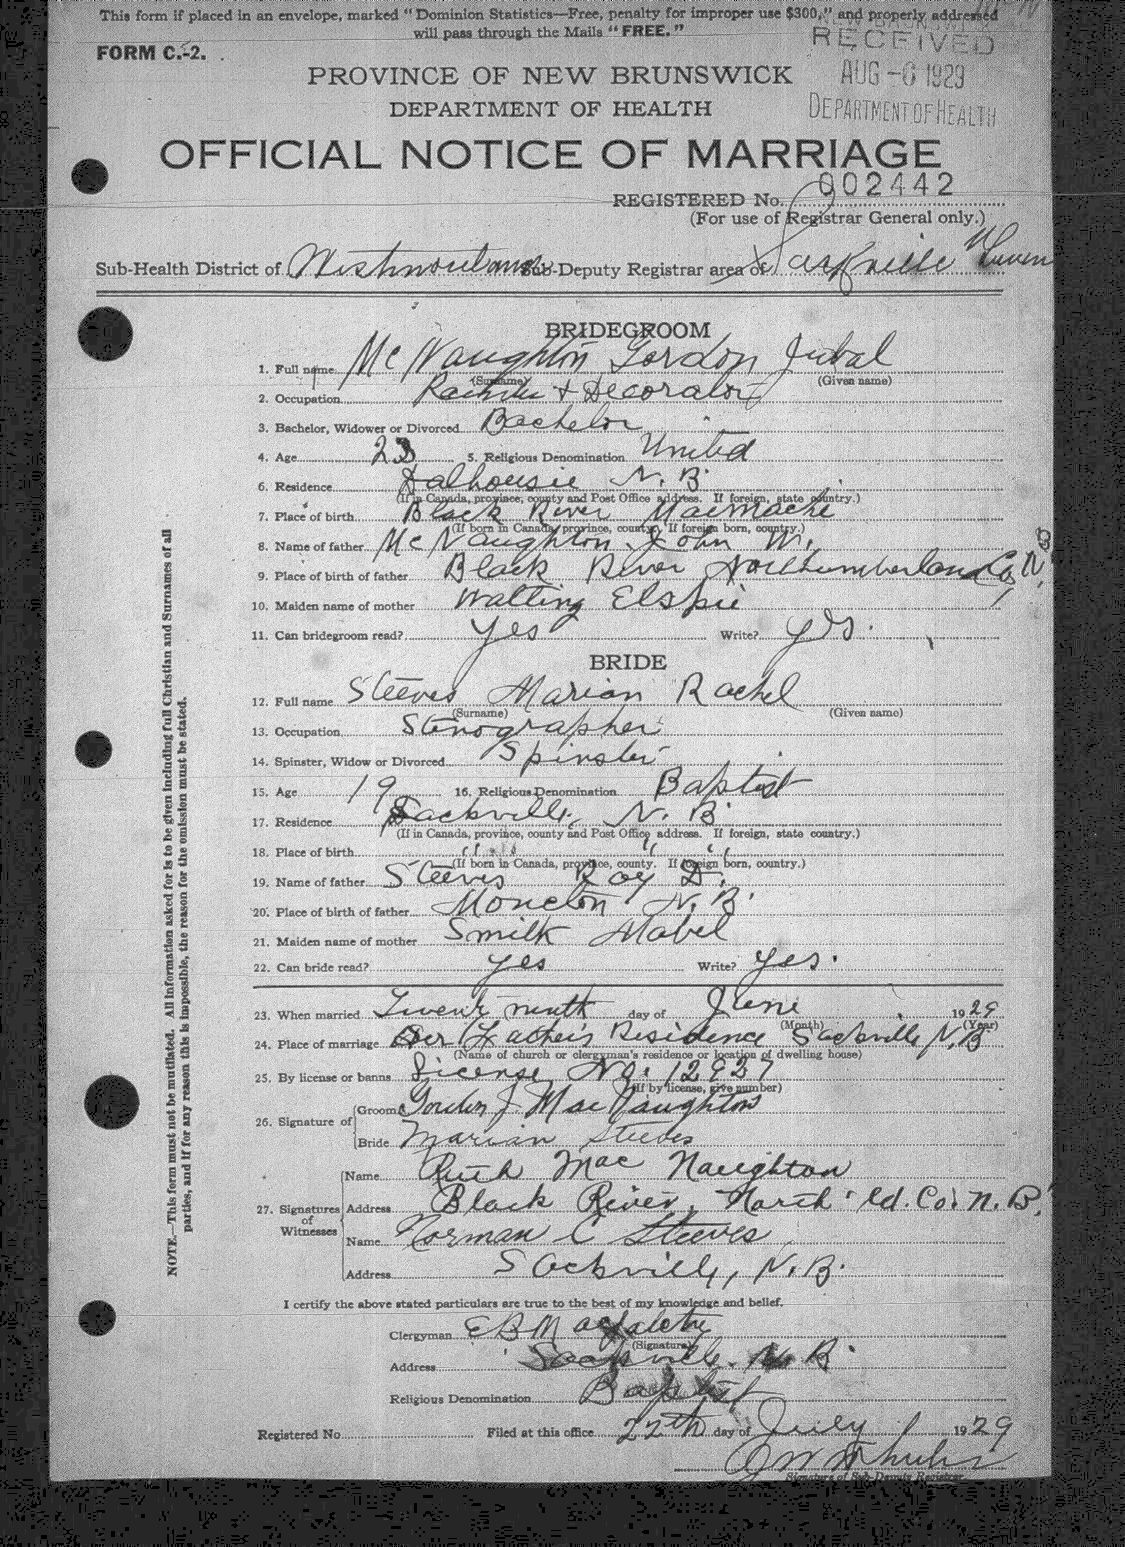 This form if placed in an envelope, marked "Dominion Statistics—Free, penalty for improper use $300," and properly addressed
will pass through the Mails "FREE."
FORM C.-2.
RECEIVED
AUG -6 1929
DEPARTMENT OF HEALTH
PROVINCE OF NEW BRUNSWICK
DEPARTMENT OF HEALTH
OFFICIAL NOTICE OF MARRIAGE
REGISTERED No. 002442
(For use of Registrar General only.)
Sub-Health District of Westmorland Sub-Deputy Registrar area of Sackville
BRIDEGROOM
1. Full name McNaughton Gordon Jubal
(Surname) (Given name)
2. Occupation & Decorator
3. Bachelor, Widower or Divorced Bachelor
4. Age 5. Religious Denomination United
6. Residence Dalhousie N. B.
(If in Canada, province, county and Post Office address. If foreign, state country.)
7. Place of birth Black River
(If born in Canada, province, county. If foreign born, country.)
8. Name of father McNaughton John W.
9. Place of birth of father Black River Northumberland Co, N.B
10. Maiden name of mother Watling Elspie
11. Can bridegroom read? Yes Write? yes.
BRIDE
12. Full name Steeves Marian Rachel
(Surname) (Given name)
13. Occupation Stenographer
14. Spinster, Widow or Divorced Spinster
15. Age 19 16. Religious Denomination Baptist
17. Residence Sackville, N. B.
(If in Canada, province, county and Post Office address. If foreign, state country.)
18. Place of birth " " "
(If born in Canada, province, county. If foreign born, country.)
19. Name of father Steeves Roy D.
20. Place of birth of father Moncton N. B.
21. Maiden name of mother Smilk Mabel
22. Can bride read? yes Write? yes.
23. When married Twenty ninth day of June 1929
(Month) (Year)
24. Place of marriage Her Father's Residence Sackville N.B
(Name of church or clergyman's residence or location of dwelling house)
25. By license or banns License No. 12927
(If by license, give number)
26. Signature of Groom Gordon J. MacNaughton
Bride Marian Steeves
27. Signatures of Witnesses
Name Ruth MacNaughton
Address Black River, North'ld. Co. N. B.
Name Norman C Steeves
Address Sackville, N. B.
I certify the above stated particulars are true to the best of my knowledge and belief.
Clergyman E B
(Signature)
Address Sackville. N. B.
Religious Denomination Baptist
Registered No Filed at this office 22th day of July 1929
Signature of Sub-Deputy Registrar
NOTE.—This form must not be mutilated. All information asked for is to be given including full Christian and Surnames of all
parties, and if for any reason this is impossible, the reason for the omission must be stated.